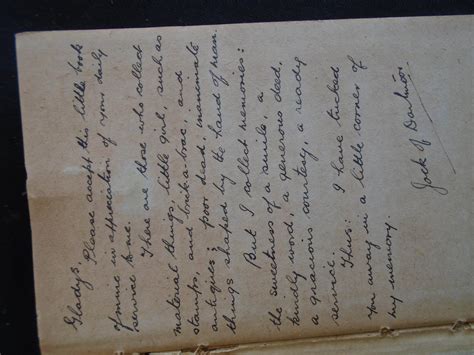 Gladys,
Please accept this little book
of mine in appreciation of your daily
service to me.
There are those who collect
material things, little girl, such as
stamps, and brick-a-brac, and
antiques; poor dead, inanimate
things shaped by the hand of man.
But I collect memories:
the sweetness of a smile, a
kindly word, a generous deed,
a gracious courtesy, a ready
service.
Thus: I have tucked
you away in a little corner of
my memory.
Jock of Dartmoor